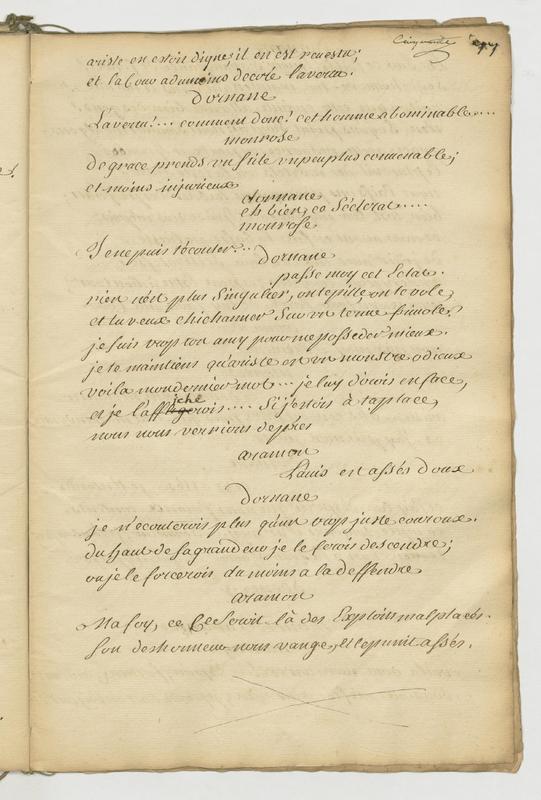 Cinquante
ariste en estoit digne, il en est revestu;
et la Cour a du moins decoré la vertu.
dornane
La vertu!... comment donc! cet homme abominable....
monrose
de grace prends un stile un peu plus convenable;
et moins injurieux
dornane
eh bien, ce Scélerat.....
monrose
Je ne puis t'écouter...
dornane
passe moy cet Eclat.
rien n'est plus Singulier, on te pille on te vole,
et tu veux chichanner Sur un terme frivole?
je suis trop ton amy pour me posseder mieux.
je te maintiens qu'ariste est un monstre odieux
voila mon dernier mot... je luy dirois en face,
et je l'afficherois.... Si j'estois à ta place,
nous nous verrions de prés
aramon
L'avis est assés doux
dornane
je n'écouterois plus qu'un trop juste couroux.
du haut de sa grandeur je le ferois descendre;
ou je le forcerois du moins a la deffendre
aramon
Ma foy, ce Seroit là des Exploits mal placés.
Son deshonneur nous vange, et le punit assés.